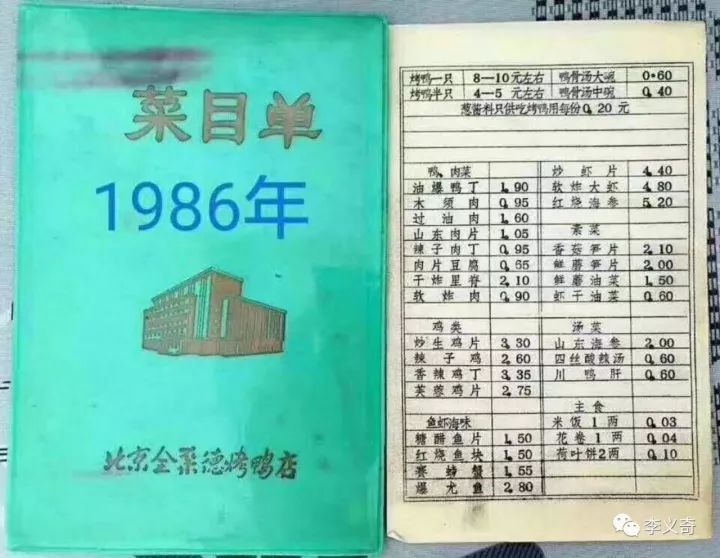 菜目单
1986年
北京全聚德烤鸭店
烤鸭一只 8—10元左右 鸭骨汤大碗 0.60
烤鸭半只 4—5元左右 鸭骨汤中碗 0.40
葱酱料只供吃烤鸭用每份0.20元
鸭、肉菜
油爆鸭丁 1.90
木须肉 0.95
过油肉 1.60
山东肉片 1.05
辣子肉丁 0.95
肉片豆腐 0.65
干炸里脊 2.10
软炸肉 0.90
鸡类
炒生鸡片 3.30
辣子鸡 2.60
香辣鸡丁 3.35
芙蓉鸡片 2.75
鱼虾海味
糖醋鱼片 1.50
红烧鱼块 1.50
赛螃蟹 1.55
爆尤鱼 2.80
炒虾片 4.40
软炸大虾 4.80
红烧海参 5.20
素菜
香菇笋片 2.10
鲜蘑笋片 2.00
鲜蘑油菜 1.50
虾干油菜 0.60
汤菜
山东海参 2.00
四丝酸辣汤 0.60
川鸭肝 0.60
主食
米饭1两 0.03
花卷1两 0.04
荷叶饼2两 0.10
李义奇